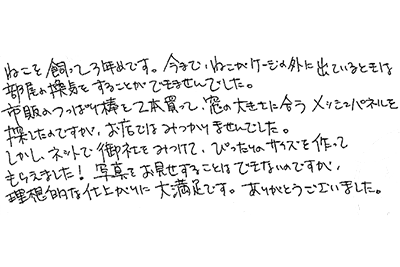 ねこを飼って3年めです。今まで、ねこがケージの外に出ているときは
部屋の換気をすることができませんでした。
市販のつっぱり棒を2本買って、窓の大きさに合うメッシュパネルを
探したのですが、お店ではみつかりませんでした。
しかし、ネットで御社をみつけて、ぴったりのサイズを作って
もらえました！写真をお見せすることはできないのですが、
理想的な仕上がりに大満足です。ありがとうございました。